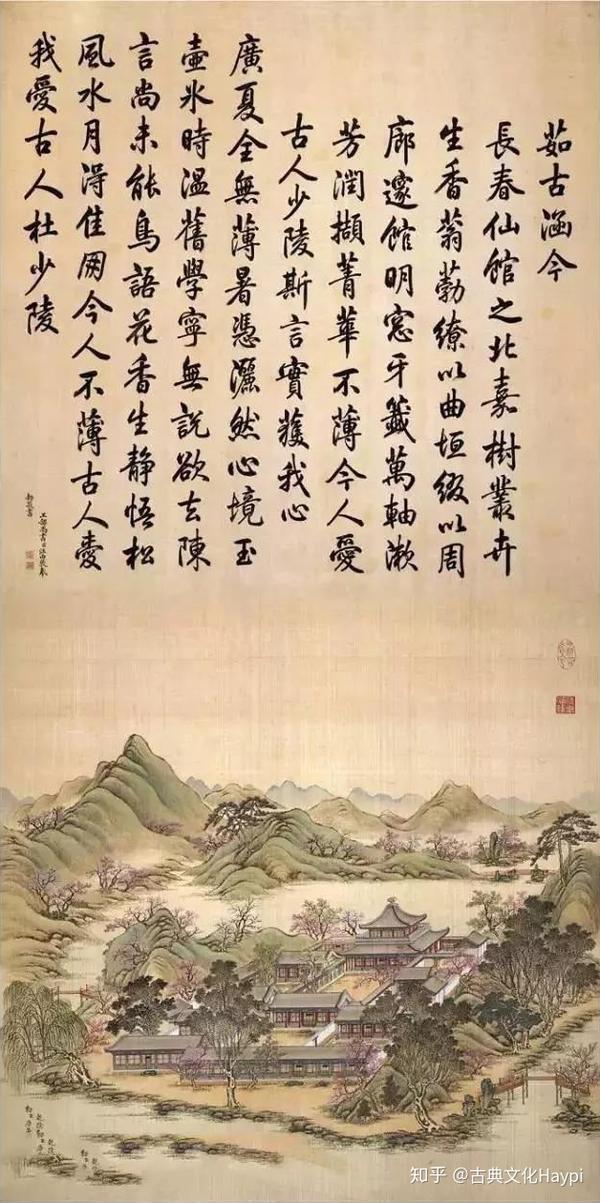 茹古涵今
長春仙館之北嘉樹叢卉
生香蓊葧繚以曲垣綴以周
廊邃館明窓牙籤萬軸漱
芳潤擷菁華不薄今人愛
古人少陵斯言實獲我心
廣夏全無薄暑憑灑然心境玉
壺氷時溫舊學寧無說欲去陳
言尚未能鳥語花香生靜悟松
風水月淂佳朋今人不薄古人愛
我愛古人杜少陵
工部尚書臣汪由敦奉
勅敬書
知乎 @古典文化Haypi